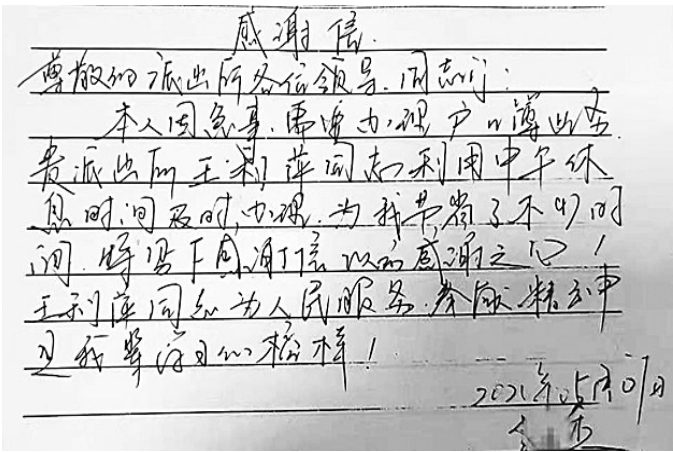 感谢信
尊敬的派出所各位领导.同志们:
本人因急事.需要办理户口簿业务.
贵派出所王利萍同志利用中午休
息时间及时,办理.为我节省了不少时
间.特写下感谢信以示感谢之心!
王利萍同志为人民服务.奉献精神
是我辈学习的榜样!
2021年05月07日